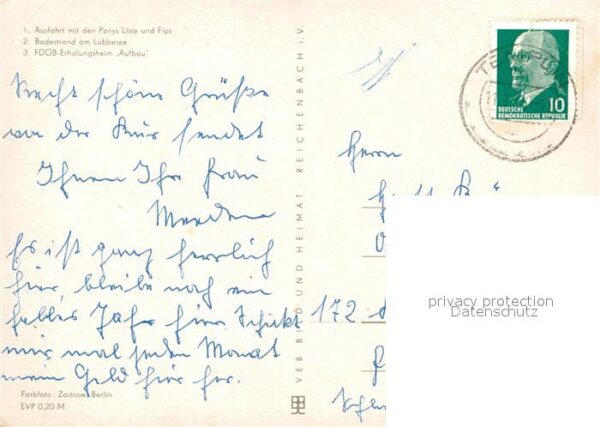 1. Ausfahrt mit den Ponys Lissy und Fips
2. Badestrand am Lübbesee
3. FDGB-Erholungsheim „Aufbau"
Recht schöne Grüße
von der Kur sendet
Ihnen Ihre Frau
Es ist ganz herrlich
hier, bleibe noch ein
halbes Jahr hier Schickt
mir mal jeden Monat
mein Geld hier her.
Farbfoto: Zastrow, Berlin
EVP 0,20 M
VEB BILD UND HEIMAT REICHENBACH i. V.
10
DEUTSCHE
DEMOKRATISCHE REPUBLIK
Herrn
172
privacy protection
Datenschutz